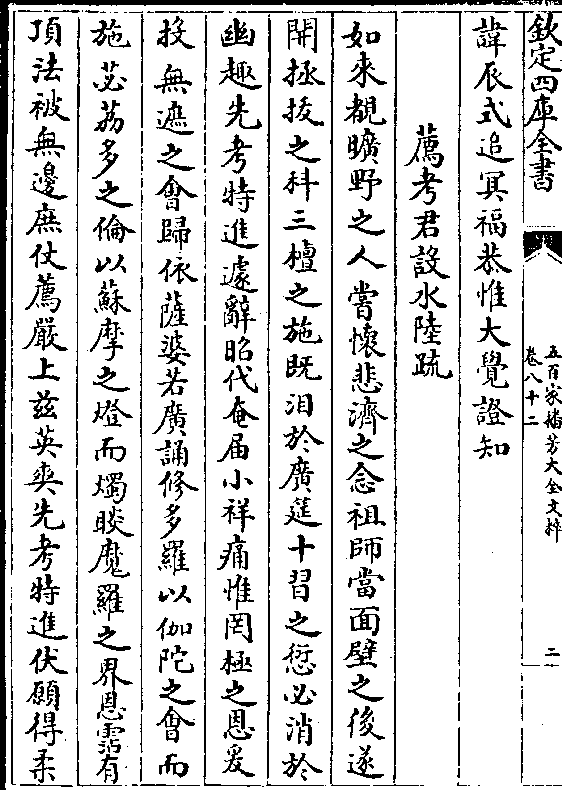 欽定四庫全書
五百家播芳大全文粹
卷八十二
二
諱辰式追冥福恭惟大覺證知
薦考君設水陸疏
如來覩曠野之人嘗懷悲濟之念祖師當面壁之後遂
開拯拔之科三檀之施既洎於廣筵十習之愆必消於
幽趣先考特進遽辭昭代奄届小祥痛惟罔極之恩爰
投無遮之會歸依薩婆若廣誦修多羅以伽陀之會而
施苾芻多之倫以蘇摩之燈而燭睒魔羅之界恩霑有
頂法被無邊庶仗薦嚴上兹英爽先考特進伏願得柔